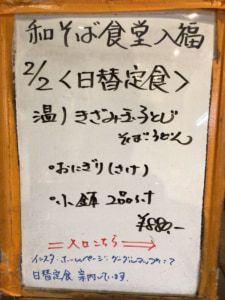 和そば食堂入福
2/2〈日替定食〉
温)きざみ玉子とじ
そばorうどん
・おにぎり(さけ)
・小鉢 2品付
¥880.-
入口こちら
インスタ・ホームページ・グーグルマップにて
日替定食 案内しています。